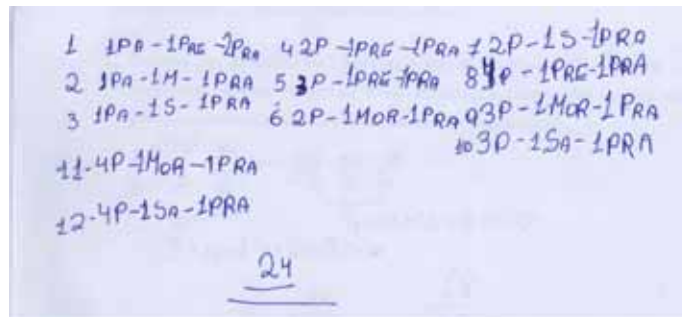 1 1PA-1PRE-2PRA 4 2P-1PRE-1PRA 7 2P-1S-1PRA
2 1PA-1M-1PRA 5 3P-1PRE-1PRA 8 4P-1PRE-1PRA
3 1PA-1S-1PRA 6 2P-1MOR-1PRA 9 3P-1MOR-1PRA
10 3P-1SA-1PRA
11-4P-1MOR-1PRA
12-4P-1SA-1PRA
24